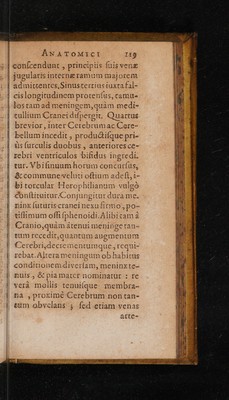 ANATOMICI 219
conscendunt, principiis suis venæ
jugularis internæ ramum majorem
admittentes, Sinus tertius juxta fal-
cis longitudinem protensus, ramu-
los tam ad meningem, quàm medi-
tullium Cranei dispergit. Quartus
brevior, inter Cerebrum ac Cere-
bellum incedit, productisque pri-
ùs surculis duobus, anteriores ce-
rebri ventriculos bifidus ingredi-
tur. Vbi sinuum horum concursus,
& commune veluti ostium adest, i-
bi torcular Herophilianum vulgò
constituitur. Conjungitur dura me-
ninx suturis cranei nexu firmo, po-
tissimum ossi sphenoidi. Alibi tam à
Cranio, quàm à tenui meninge tan-
tum recedit, quantum augmentum
Cerebri, decrementumque, requi-
rebat. Altera meningum ob habitus
conditionem diversam, meninx te-
nuis, & pia mater nominatur: re
verâ mollis tenuisque membra-
na, proximè Cerebrum non tan-
tum obvelans; sed etiam venas
arte-